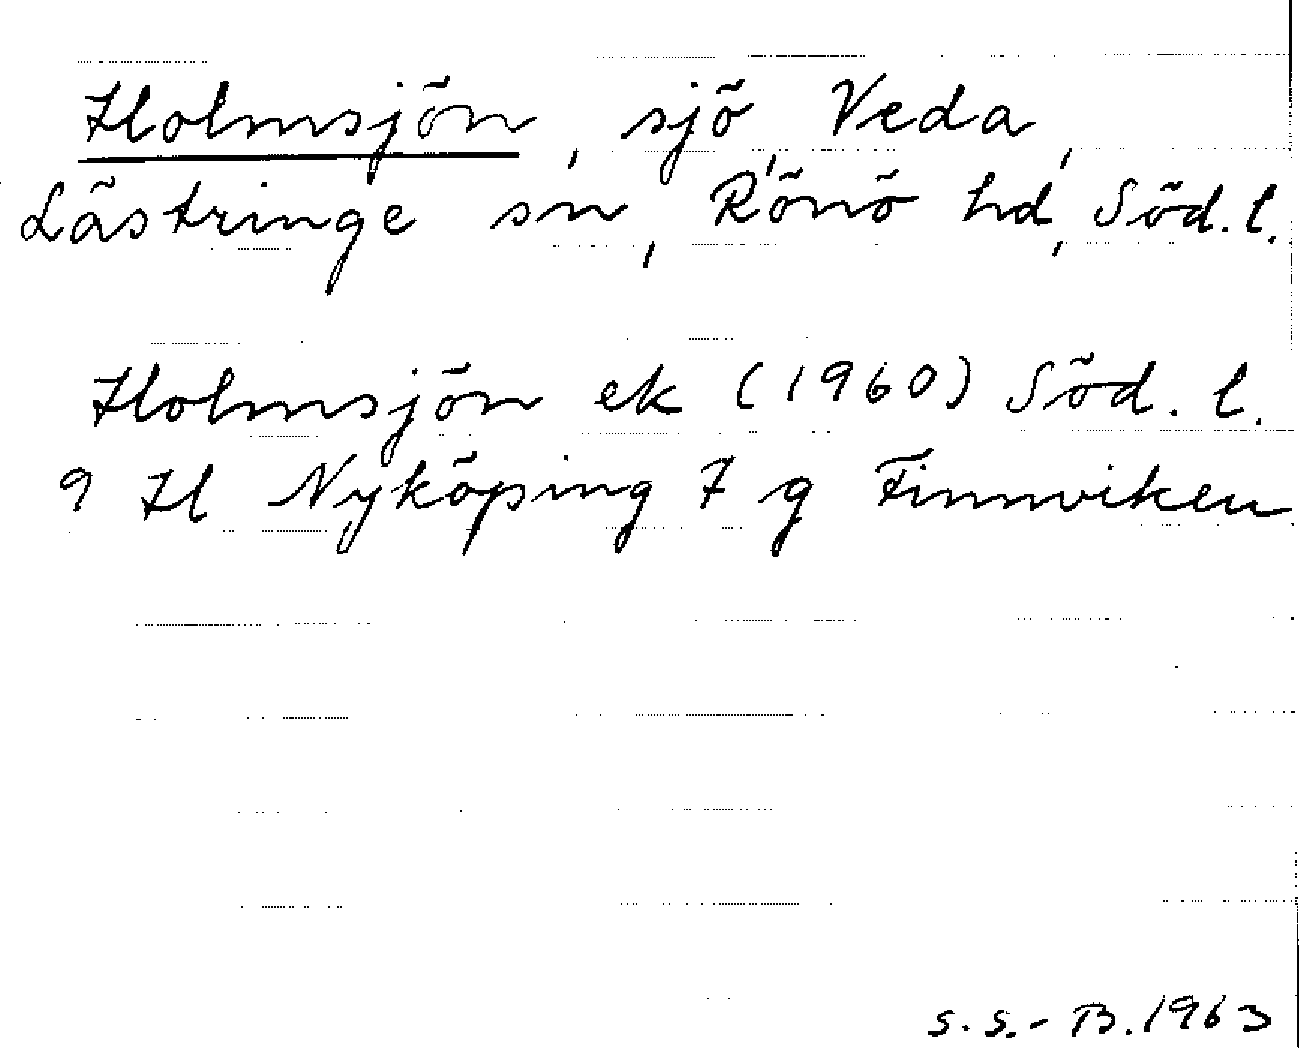 Holmsjön, sjö, Veda,
Lästringe sn, Rönö hd, Söd. l.
Holmsjön ek (1960) Söd. l.
9 H Nyköping 7 g Finnviken
S.S.-B. 1963